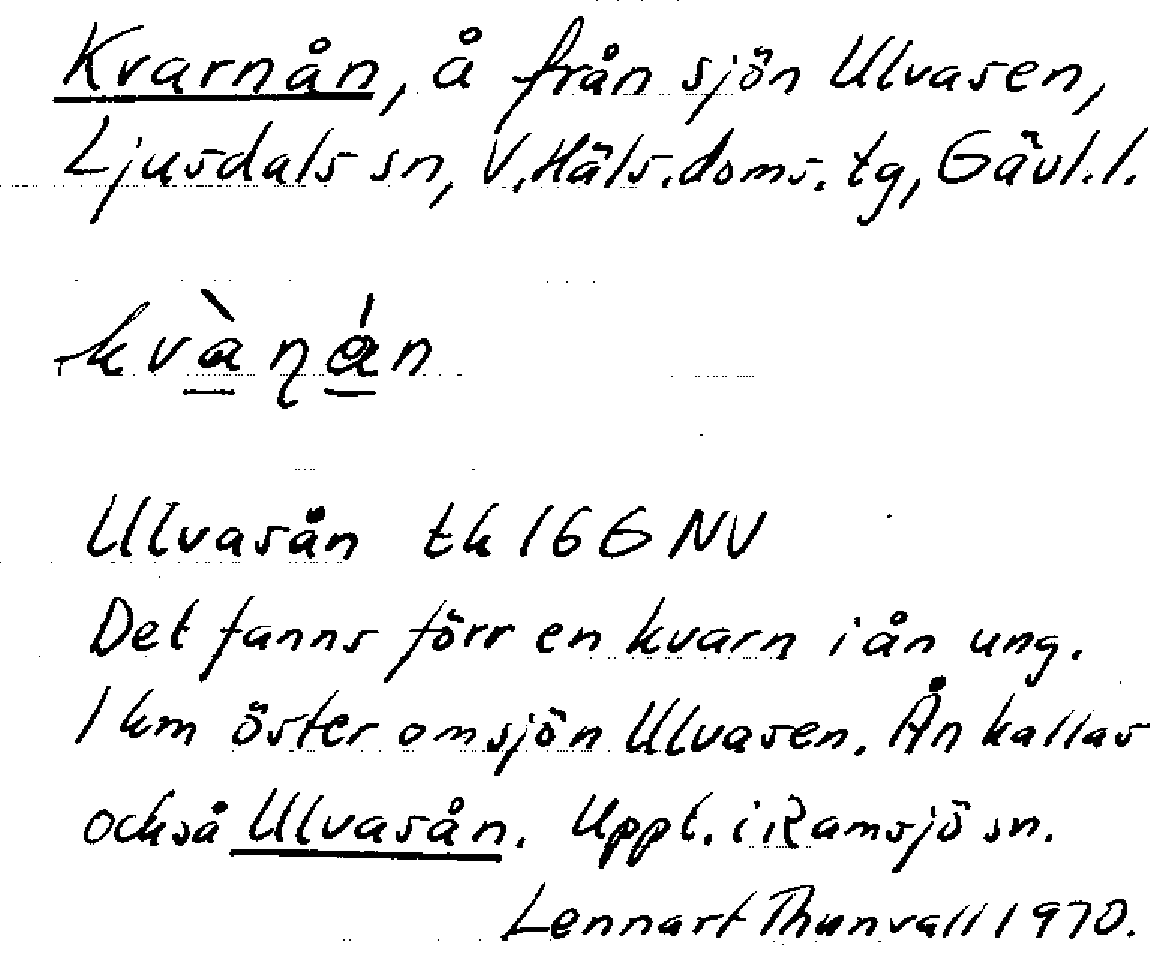 Kvarnån, å från sjön Ulvasen,
Ljusdals sn, V. Häls. doms. tg, Gävl. l.
kvànån
Ulvasån tk 16G NV
Det fanns förr en kvarn i ån ung.
1 km öster om sjön Ulvasen. Ån kallas
också Ulvasån. Uppt. i Ramsjö sn.
Lennart Thunvall 1970.